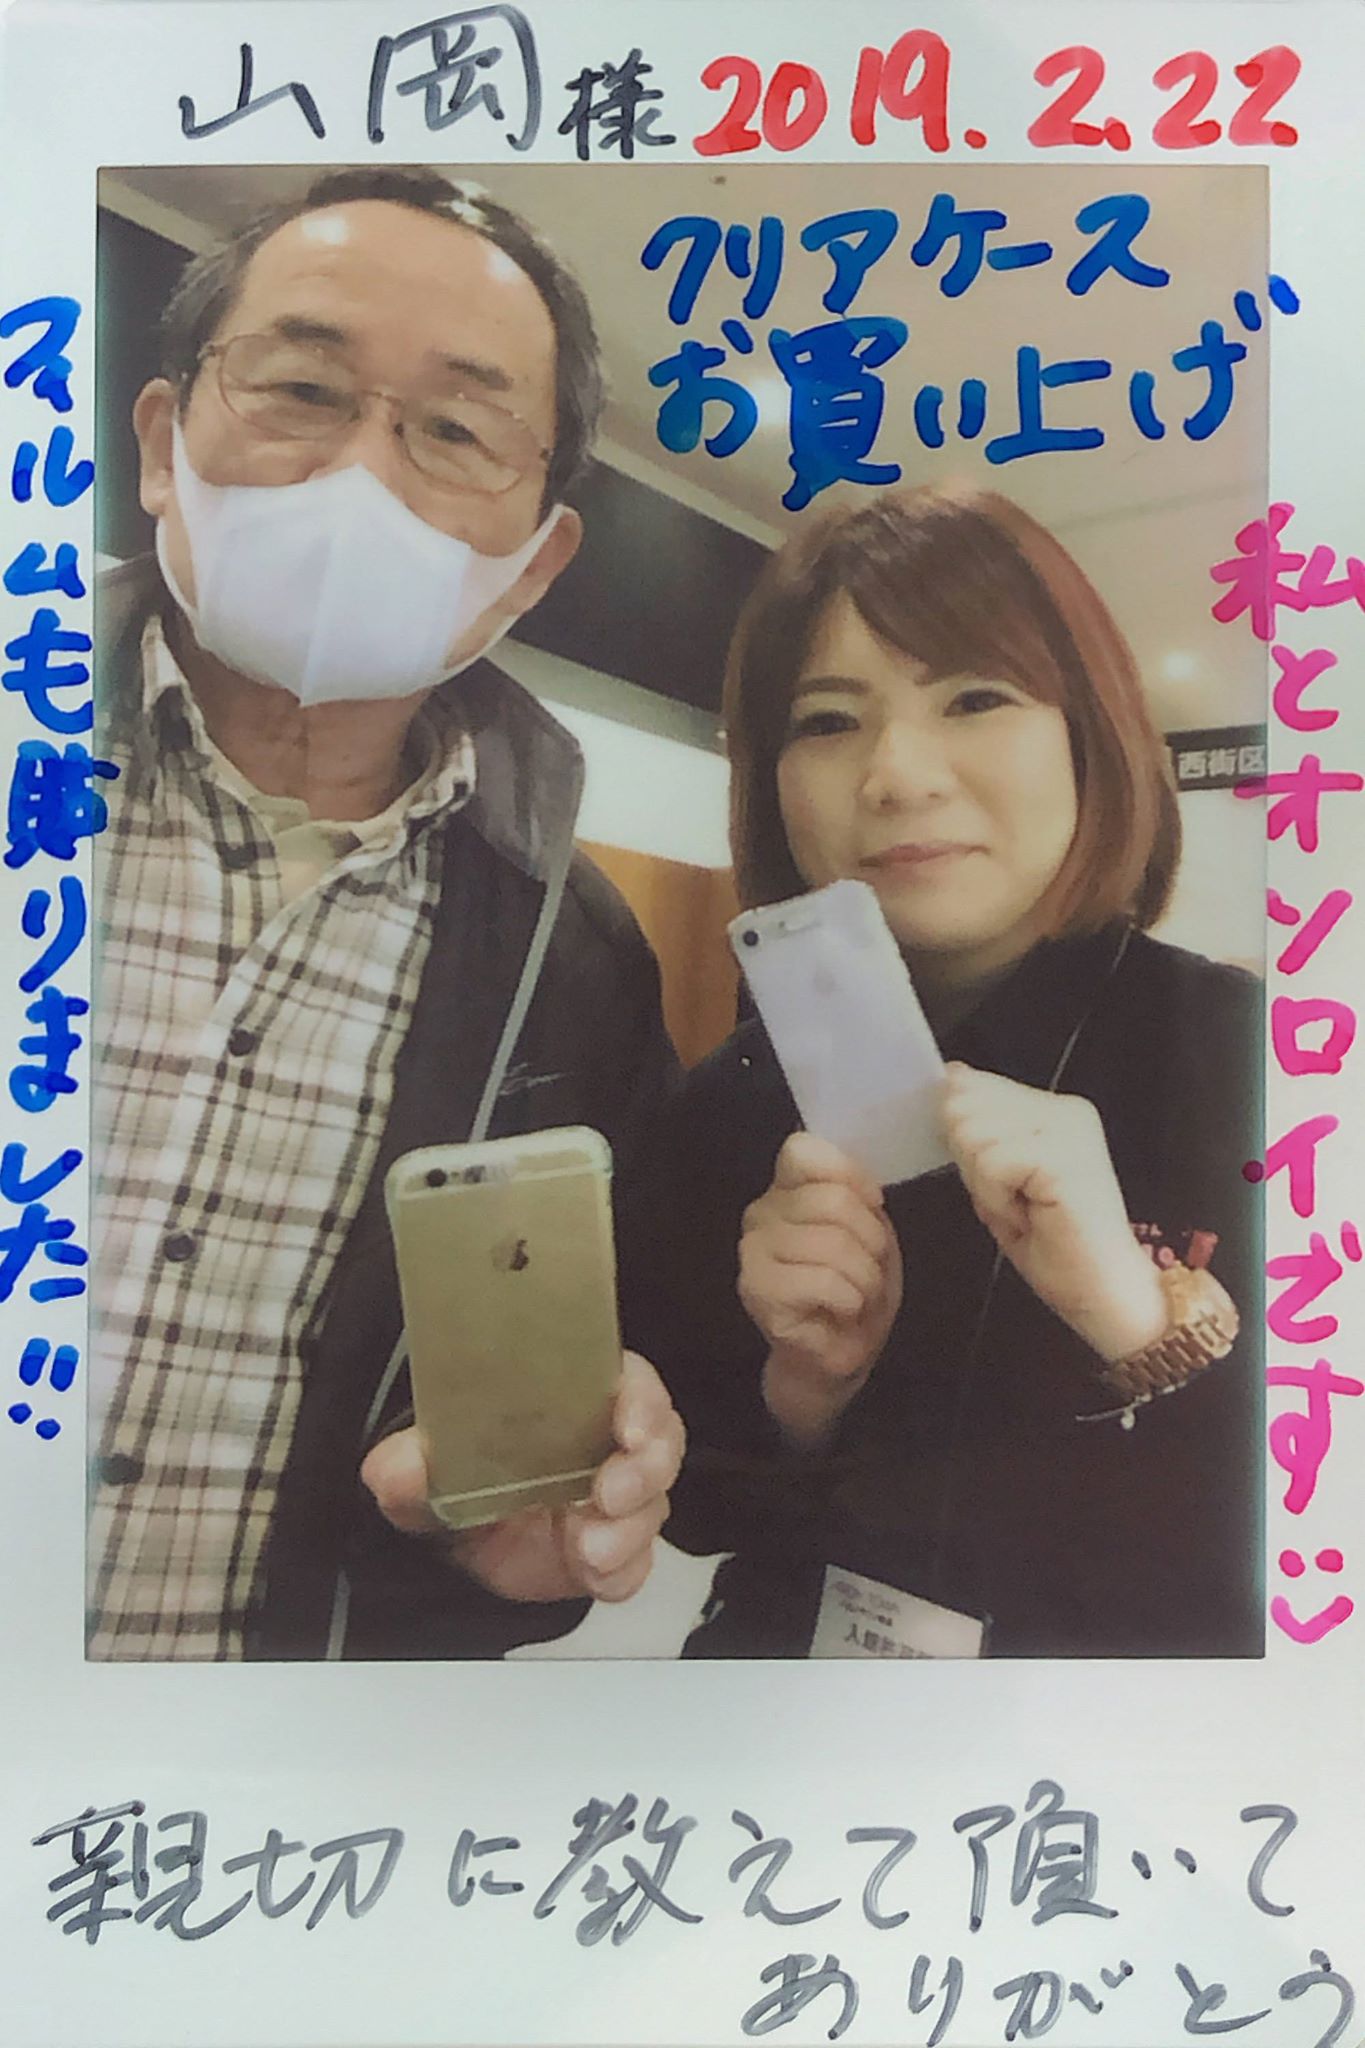 山岡様 2019.2.22
クリアケース
お買い上げ
フィルムも貼りました!!
私とオソロイです
西街区
親切に教えて頂いて
ありがとう